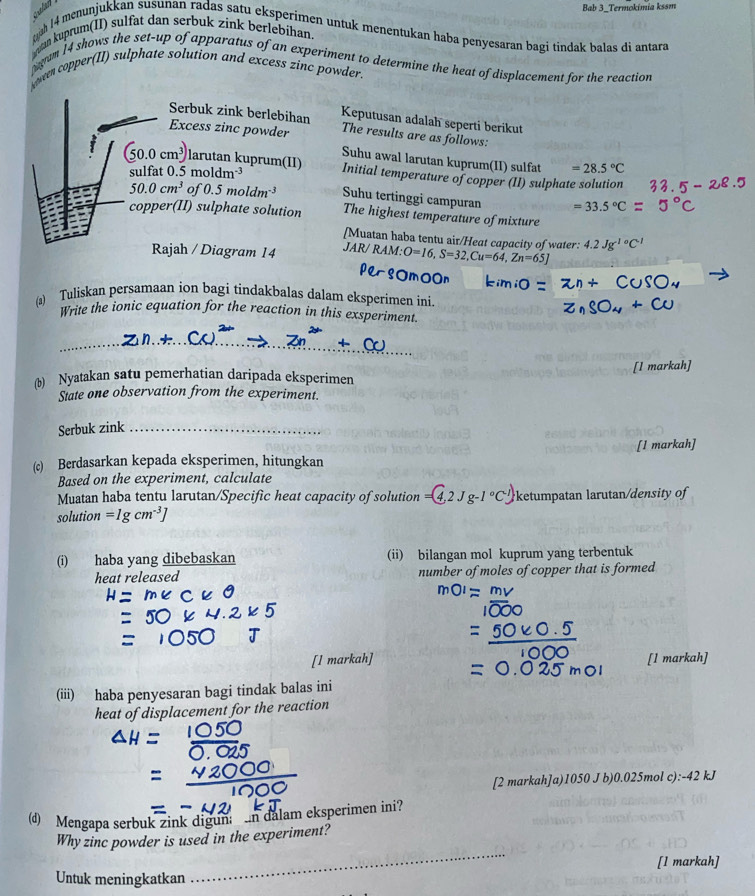 Bab 3_Termokimia kssm
14 menunjukkan susunan radas satu eksperimen untuk menentukan haba penyesaran bagi tindak balas di antara
kuprum(II) sulfat dan serbuk zink berlebihan.
14 shows the set-up of apparatus of an experiment to determine the heat of displacement for the reaction
copper(II) sulphate solution and excess zinc powder.
Serbuk zink berlebihan
Excess zinc powder
50.0 cm³ larutan kuprum(II)
sulfat 0.5 moldm⁻³
50.0 cm³ of 0.5 moldm⁻³
copper(II) sulphate solution
Rajah / Diagram 14
Keputusan adalah seperti berikut
The results are as follows:
Suhu awal larutan kuprum(II) sulfat = 28.5 °C
Initial temperature of copper (II) sulphate solution
33.5 - 28.5
Suhu tertinggi campuran = 33.5 °C = 5°C
The highest temperature of mixture
[Muatan haba tentu air/Heat capacity of water: 4.2 Jg⁻¹ °C⁻¹
JAR/ RAM:O=16, S=32,Cu=64, Zn=65]
Persamaan kimia = Zn + CuSO₄ →
ZnSO₄ + Cu
(a) Tuliskan persamaan ion bagi tindakbalas dalam eksperimen ini.
Write the ionic equation for the reaction in this exsperiment.
Zn + Cu²⁺ → Zn²⁺ + Cu
[1 markah]
(b) Nyatakan satu pemerhatian daripada eksperimen
State one observation from the experiment.
Serbuk zink
[1 markah]
(c) Berdasarkan kepada eksperimen, hitungkan
Based on the experiment, calculate
Muatan haba tentu larutan/Specific heat capacity of solution = 4.2 J g-1 °C⁻¹; ketumpatan larutan/density of
solution =1g cm⁻³]
(i) haba yang dibebaskan
heat released
H = m x c x θ
= 50 x 4.2 x 5
= 1050 J
[1 markah]
(ii) bilangan mol kuprum yang terbentuk
number of moles of copper that is formed
mol = mv
1000
= 50 x 0.5
1000
= 0.025 mol
[1 markah]
(iii) haba penyesaran bagi tindak balas ini
heat of displacement for the reaction
ΔH = 1050
0.025
= 42000
1000
= - 42 kJ
[2 markah]a)1050 J b)0.025mol c):-42 kJ
(d) Mengapa serbuk zink dalam eksperimen ini?
Why zinc powder is used in the experiment?
[1 markah]
Untuk meningkatkan